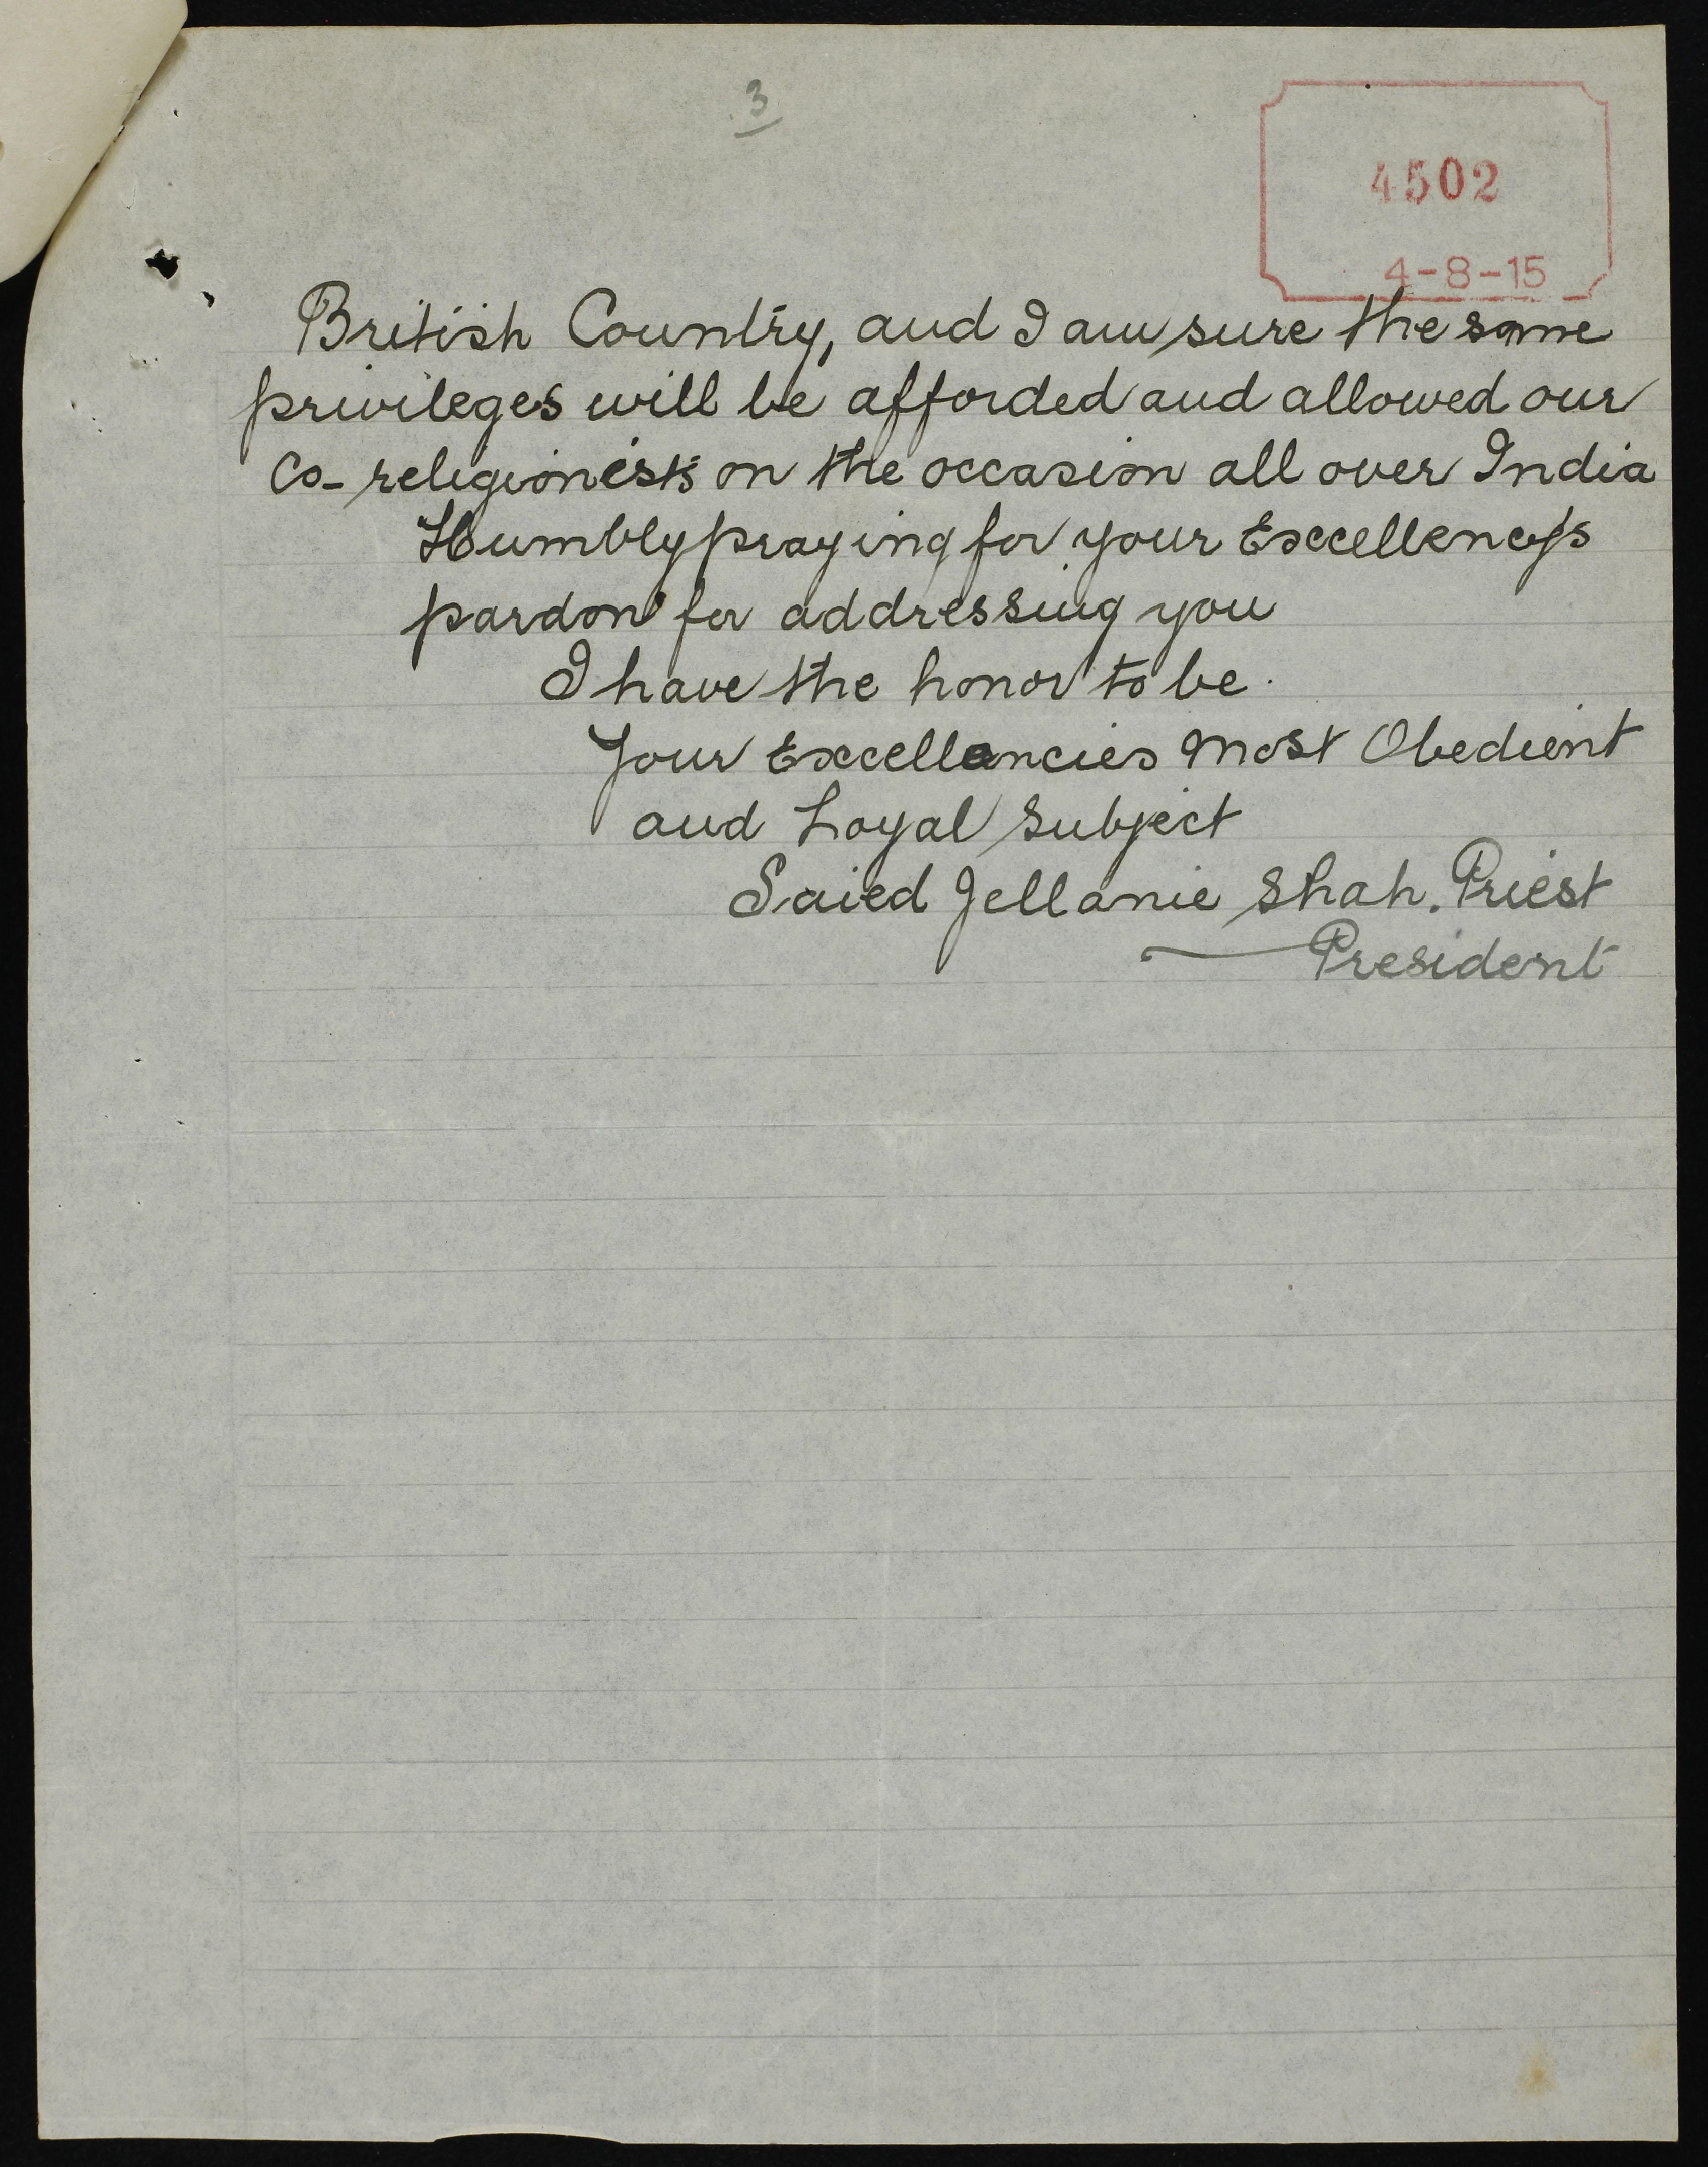 3
4502
4-8-15
British Country, and I am sure the same
privileges will be afforded and allowed our
Co-religionists on the occasion all over India
Humbly praying for your Excellency's
pardon for addressing you
I have the honor to be.
Your Excellencies Most Obedient
and Loyal Subject
Saied Jellanie Shah. Priest
President